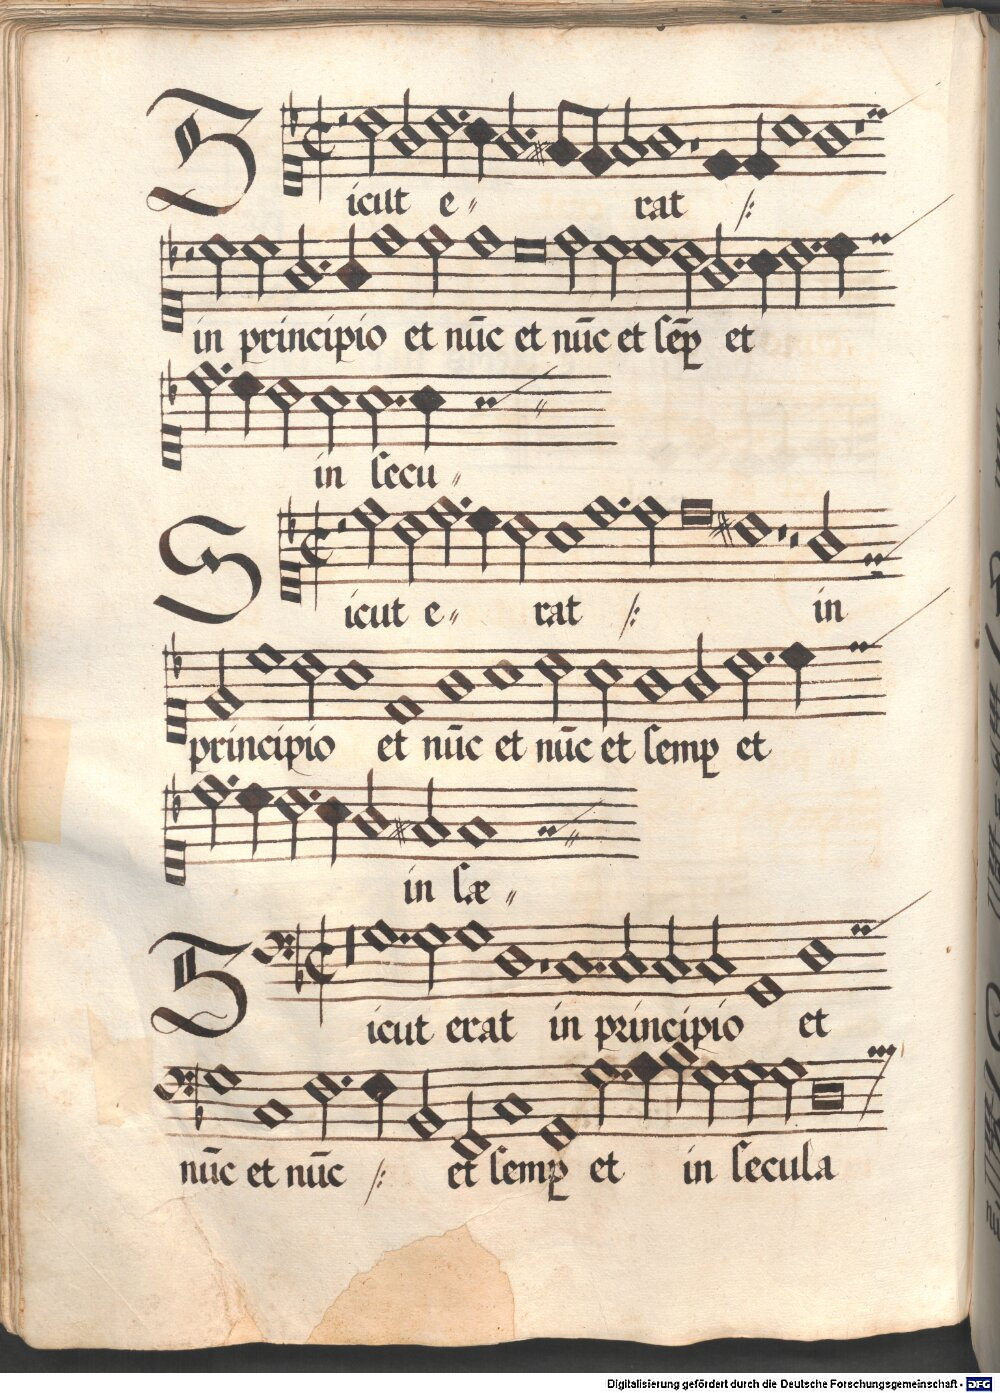 Sicut e〃 rat /:
in principio et nūc et nūc et sēp̱ et
in secu〃
Sicut e〃 rat /: in
principio et nūc et nūc et semp̱ et
in sæ〃
Sicut erat in principio et
nūc et nūc /: et semp̱ et in secula
Digitalisierung gefördert durch die Deutsche Forschungsgemeinschaft - DFG